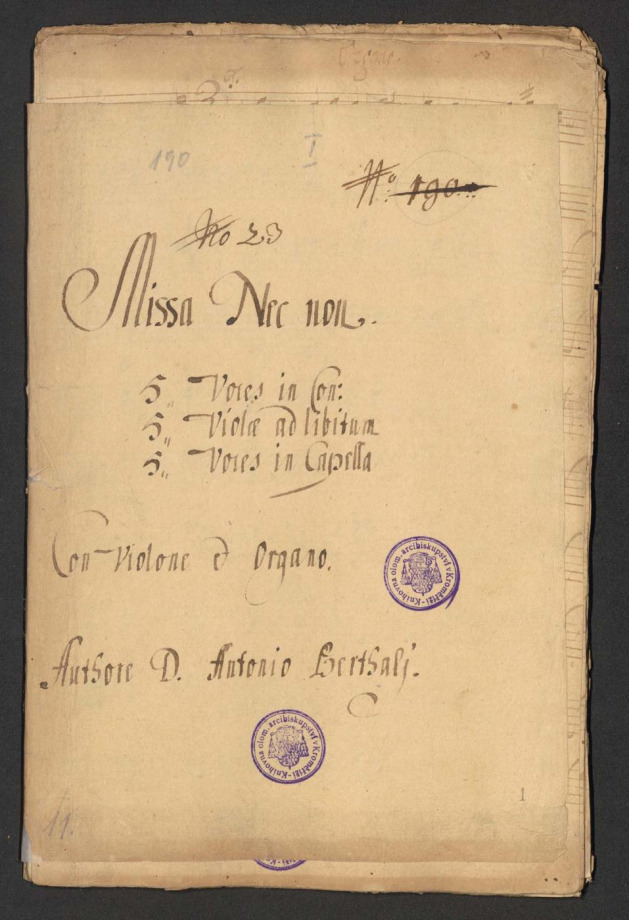 Organo.
190
I
No: 190
No 23
Missa Nec non.
5,, Voces in Con:
5,, Violæ ad libitum
5,, Voces in Capella
Con Violone è Organo.
Authore D. Antonio Berthalj.
Knihovna olom. arcibiskupství v Kroměříži
Knihovna olom. arcibiskupství v Kroměříži
1
11.